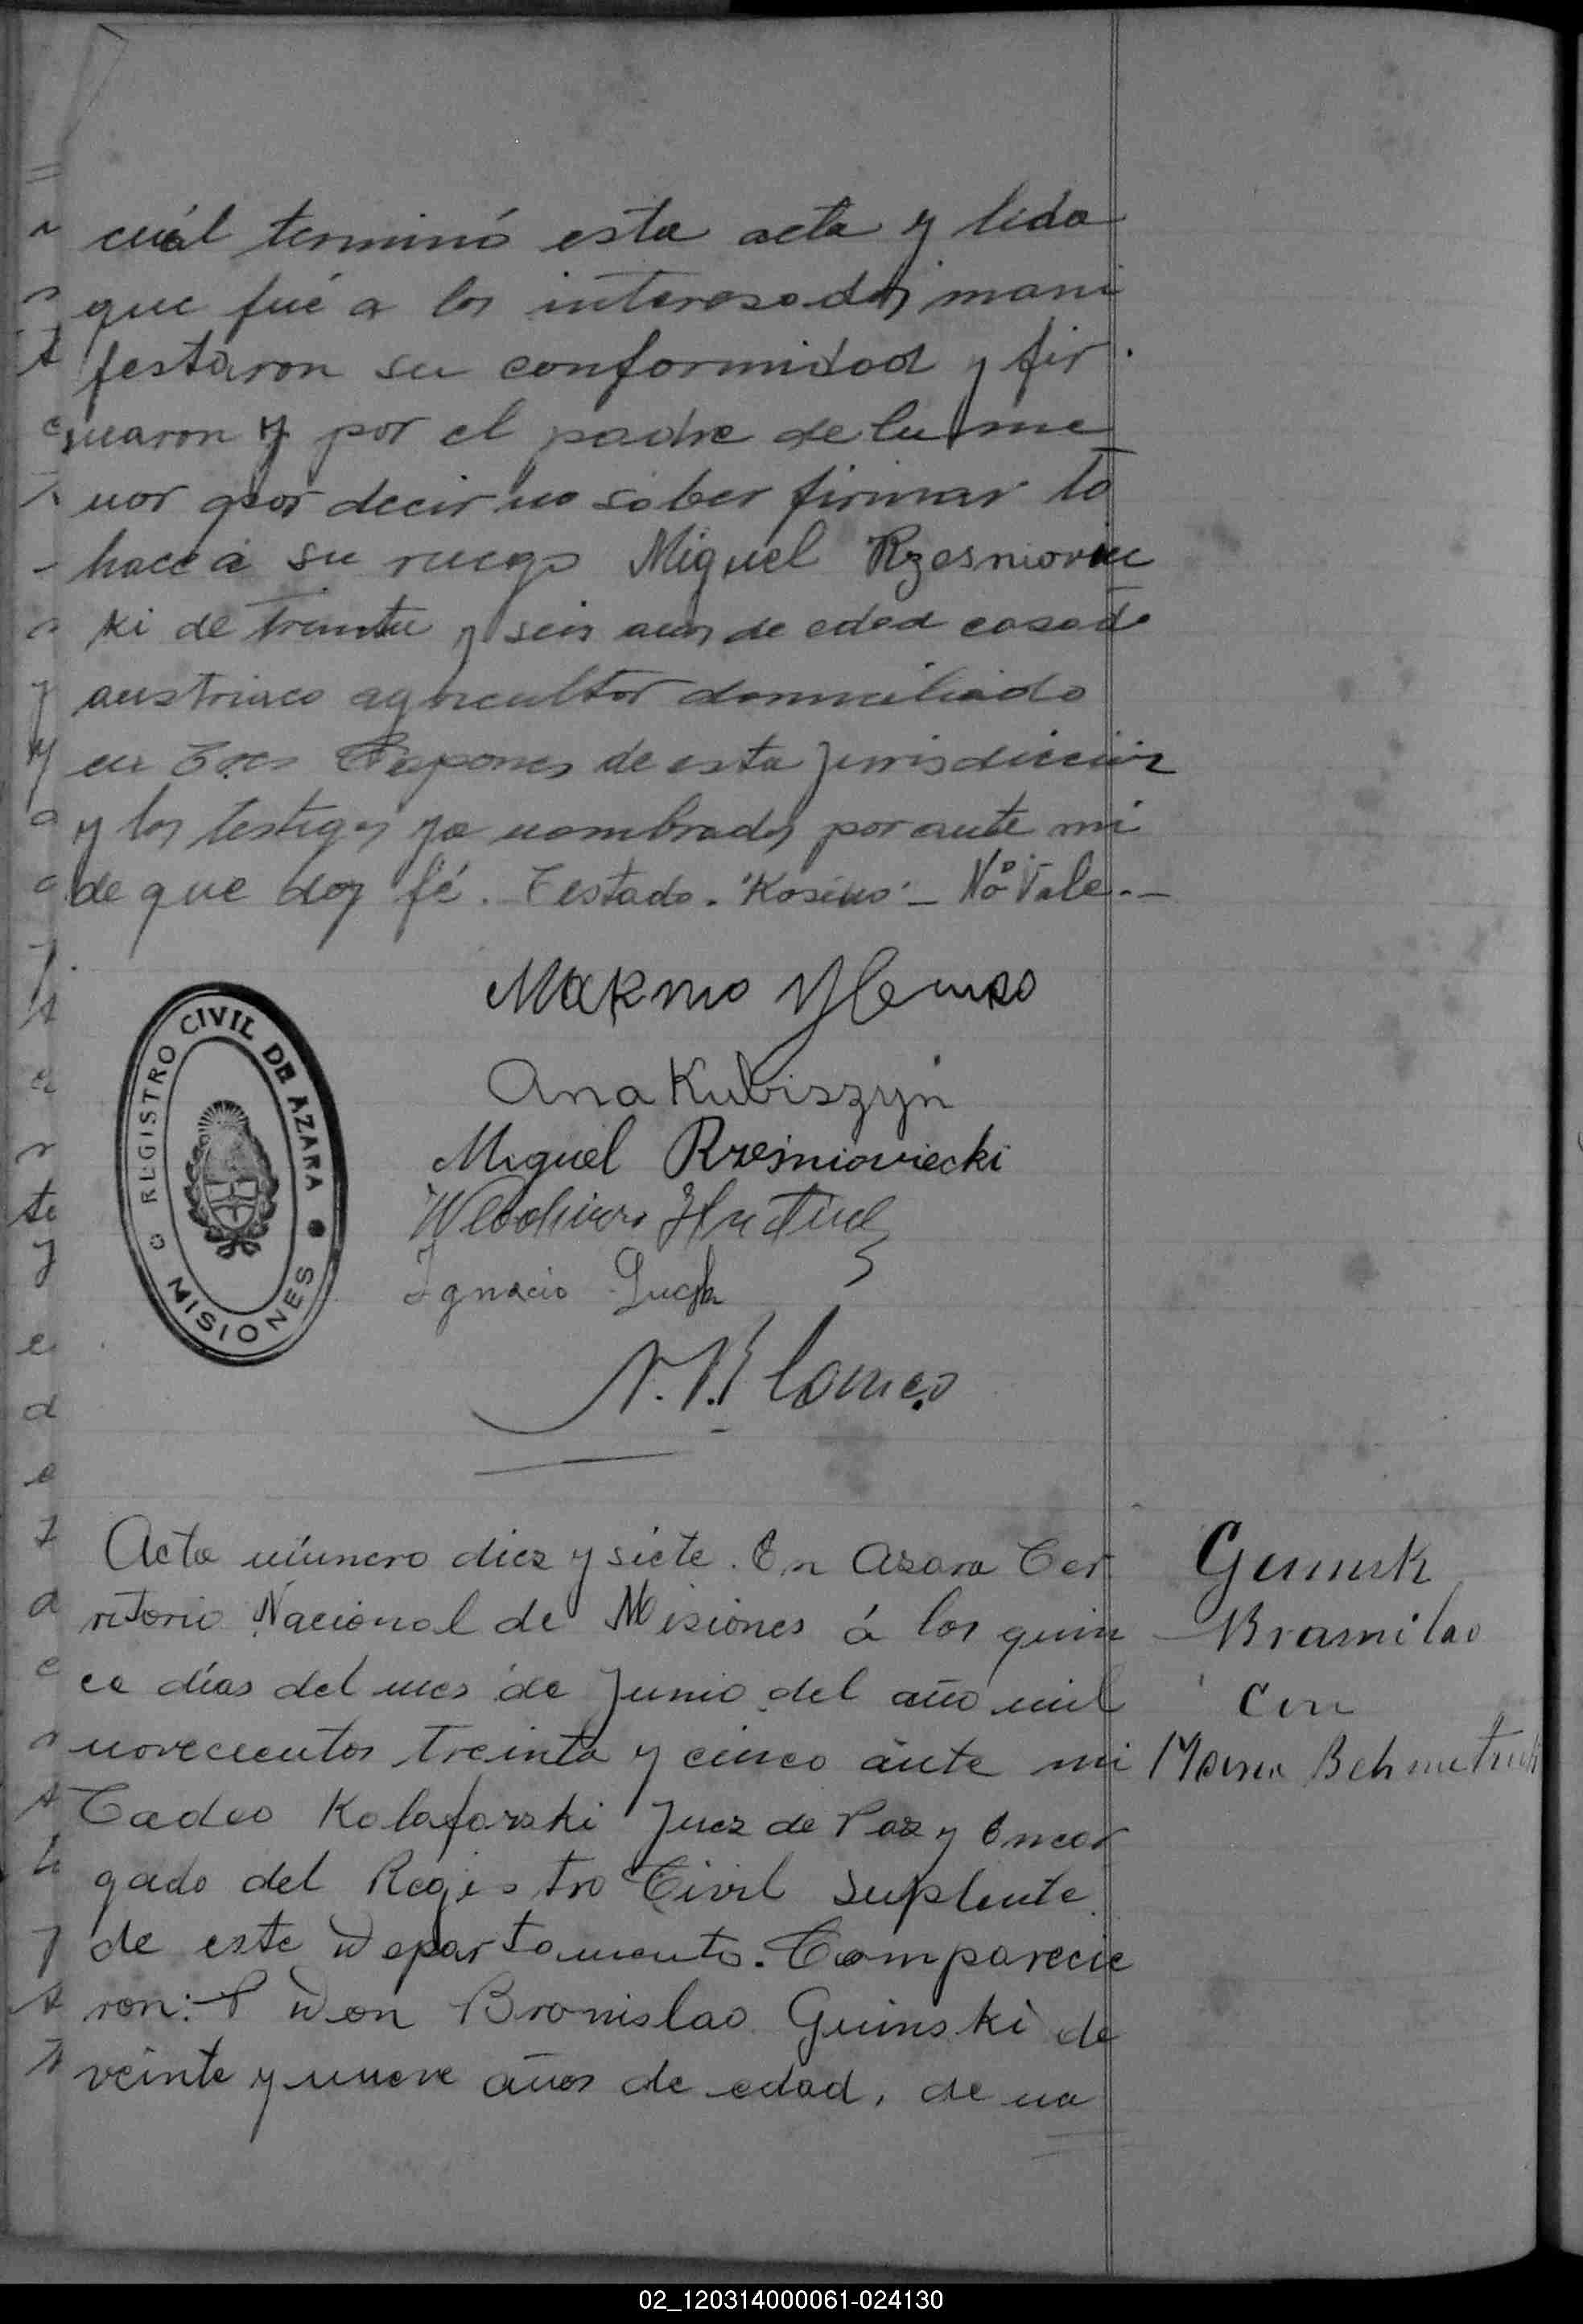 cuál terminó esta acta y leida
que fué a los interesados mani
festaron su conformidad y fir
maron y por el padre de la me
nor por decir no saber firmar lo
hace á su ruego Miguel Rzesniowiec
ki de treinta y seis años de edad casado
austriaco agricultor domiciliado
en Tres Capones de esta Jurisdiccion
y los testigos ya nombrados por ante mi
de que doy fé. Testado. "Kosino" - No Vale. -
REGISTRO CIVIL DE AZARA
MISIONES
Ana Kubiszyn
Miguel Rzesniowiecki
Ignacio
Acta número diez y siete. En Azara Ter
ritorio Nacional de Misiones á los quin
ce días del mes de Junio del año mil
novecientos treinta y cinco ante mi
Tadeo Kolaforski Juez de Paz y Encar
gado del Registro Civil Suplente
de este Departamento. Comparecie
ron: Don Bronislao Guinski de
veinte y nueve años de edad, de na
Bronislao
Con
Maria
02_120314000061-024130